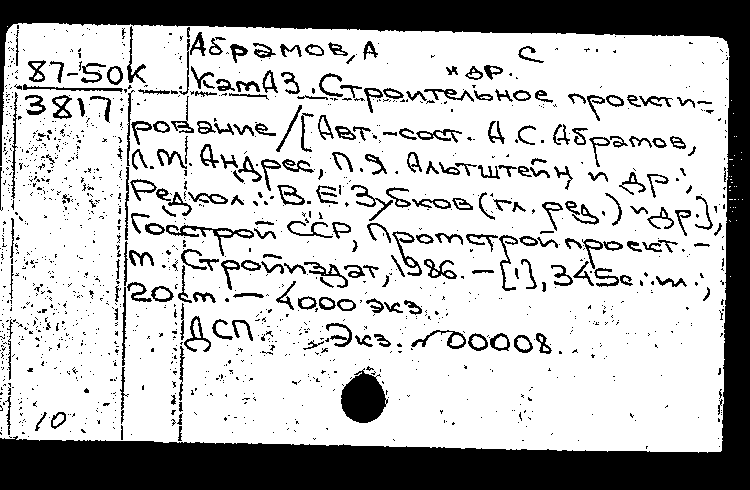 Абрамов, А С
и др.
87-50К
3817
КамАЗ. Строительное проекти=
рование / [Авт.-сост. А.С. Абрамов,
Л.М. Андрес, П.Я. Альтштейн и др.;
Редкол.: В.Е. Зубков (гл. ред.) и др.];
Госстрой СССР, Промстройпроект. –
М.: Стройиздат, 1986. – [1], 345 с.: ил.;
20 см. – 4000 экз.
ДСП. Экз. № 00008.
10